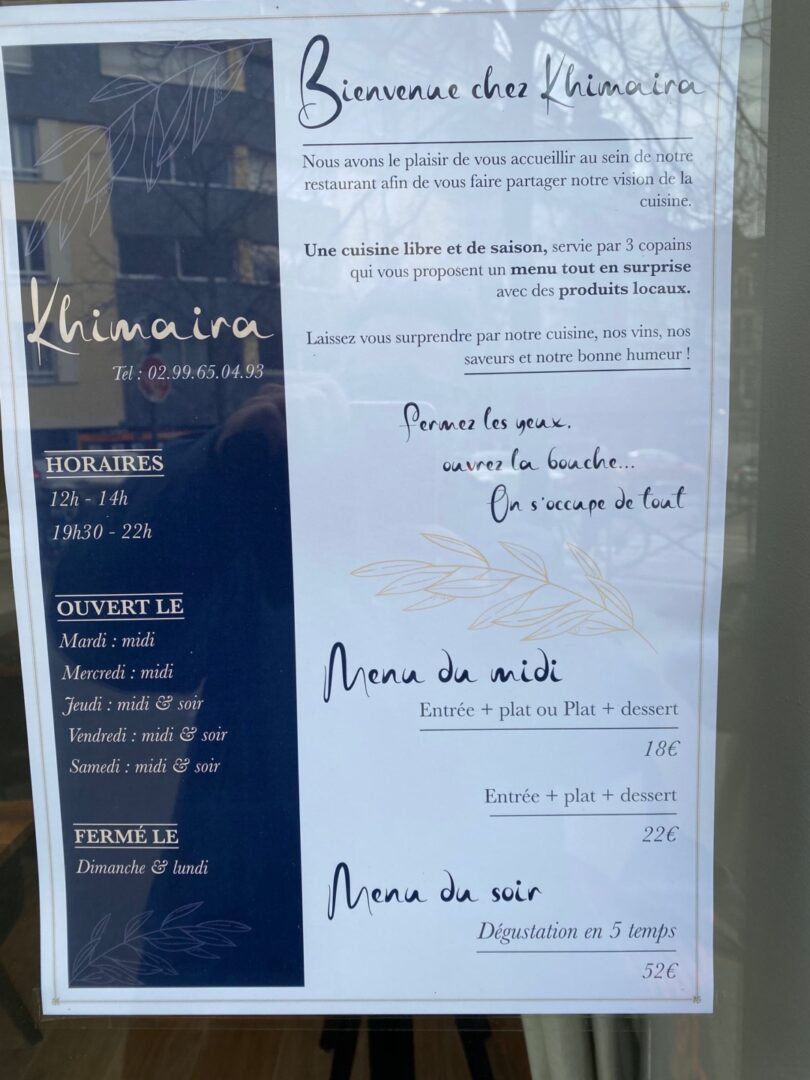 Khimaira
Tél : 02.99.65.04.93
HORAIRES
12h - 14h
19h30 - 22h
OUVERT LE
Mardi : midi
Mercredi : midi
Jeudi : midi & soir
Vendredi : midi & soir
Samedi : midi & soir
FERMÉ LE
Dimanche & lundi
Bienvenue chez Khimaira
Nous avons le plaisir de vous accueillir au sein de notre
restaurant afin de vous faire partager notre vision de la
cuisine.
Une cuisine libre et de saison, servie par 3 copains
qui vous proposent un menu tout en surprise
avec des produits locaux.
Laissez vous surprendre par notre cuisine, nos vins, nos
saveurs et notre bonne humeur !
Fermez les yeux.
ouvrez la bouche...
On s'occupe de tout
Menu du midi
Entrée + plat ou Plat + dessert
18€
Entrée + plat + dessert
22€
Menu du soir
Dégustation en 5 temps
52€